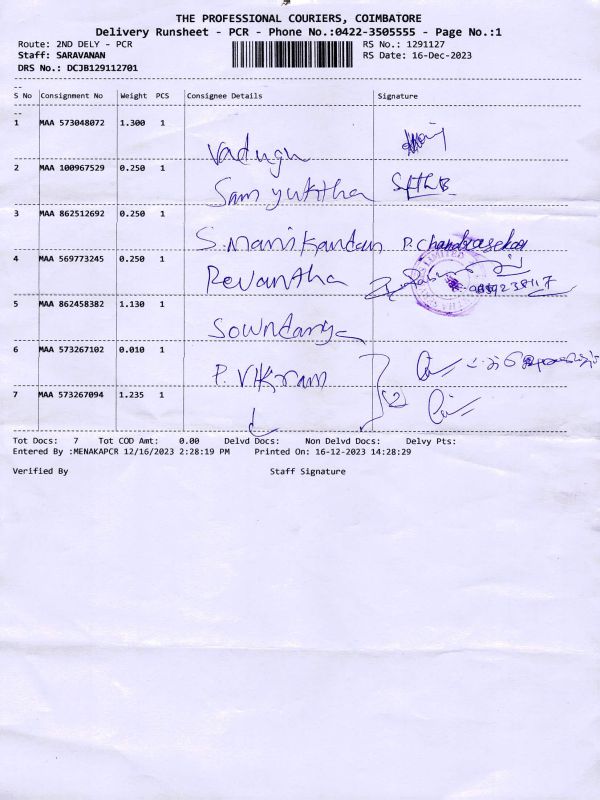 THE PROFESSIONAL COURIERS, COIMBATORE
Delivery Runsheet - PCR - Phone No.:0422-3505555 - Page No.:1
Route: 2ND DELY - PCR RS No.: 1291127
Staff: SARAVANAN RS Date: 16-Dec-2023
DRS No.: DCJB129112701
S No Consignment No Weight PCS Consignee Details Signature
1 MAA 573048072 1.300 1
Vadugu
2 MAA 100967529 0.250 1
Samyuktha
3 MAA 862512692 0.250 1
S. Manikandan P. Chandrasekar
4 MAA 569773245 0.250 1
Revantha
5 MAA 862458382 1.130 1
Sowndarya
6 MAA 573267102 0.010 1
P. Vikram
7 MAA 573267094 1.235 1
2
Tot Docs: 7 Tot COD Amt: 0.00 Delvd Docs: Non Delvd Docs: Delvy Pts:
Entered By :MENAKAPCR 12/16/2023 2:28:19 PM Printed On: 16-12-2023 14:28:29
Verified By Staff Signature